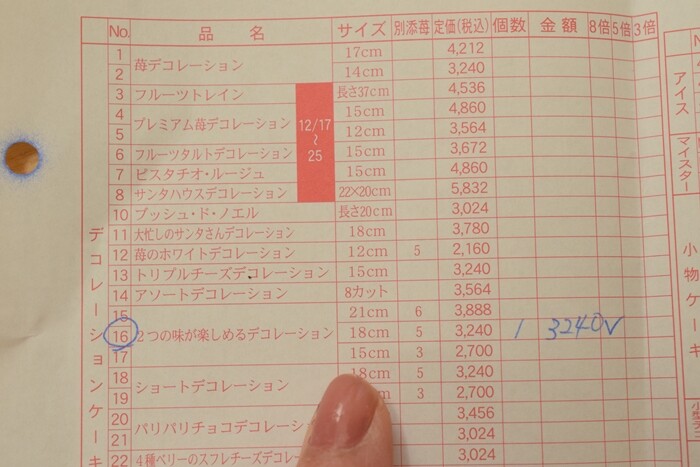 No. 品名 サイズ 別添苺 定価(税込) 個数 金額 8倍 5倍 3倍
デコレーションケーキ
1 苺デコレーション 17cm 4,212
2 14cm 3,240
3 フルーツトレイン 長さ37cm 4,536
4 プレミアム苺デコレーション 15cm 4,860
5 12cm 3,564
12/17〜25
6 フルーツタルトデコレーション 15cm 3,672
7 ピスタチオ・ルージュ 15cm 4,860
8 サンタハウスデコレーション 22×20cm 5,832
10 ブッシュ・ド・ノエル 長さ20cm 3,024
11 大忙しのサンタさんデコレーション 18cm 3,780
12 苺のホワイトデコレーション 12cm 5 2,160
13 トリプルチーズデコレーション 15cm 3,240
14 アソートデコレーション 8カット 3,564
15 21cm 6 3,888
16 2つの味が楽しめるデコレーション 18cm 5 3,240 1 3240
17 15cm 3 2,700
18 ショートデコレーション 18cm 5 3,240
19 3 2,700
20 パリパリチョコデコレーション 3,456
21 3,024
22 4種ベリーのスフレチーズデコレー 3,024
アイス
マイスター
小物ケーキ